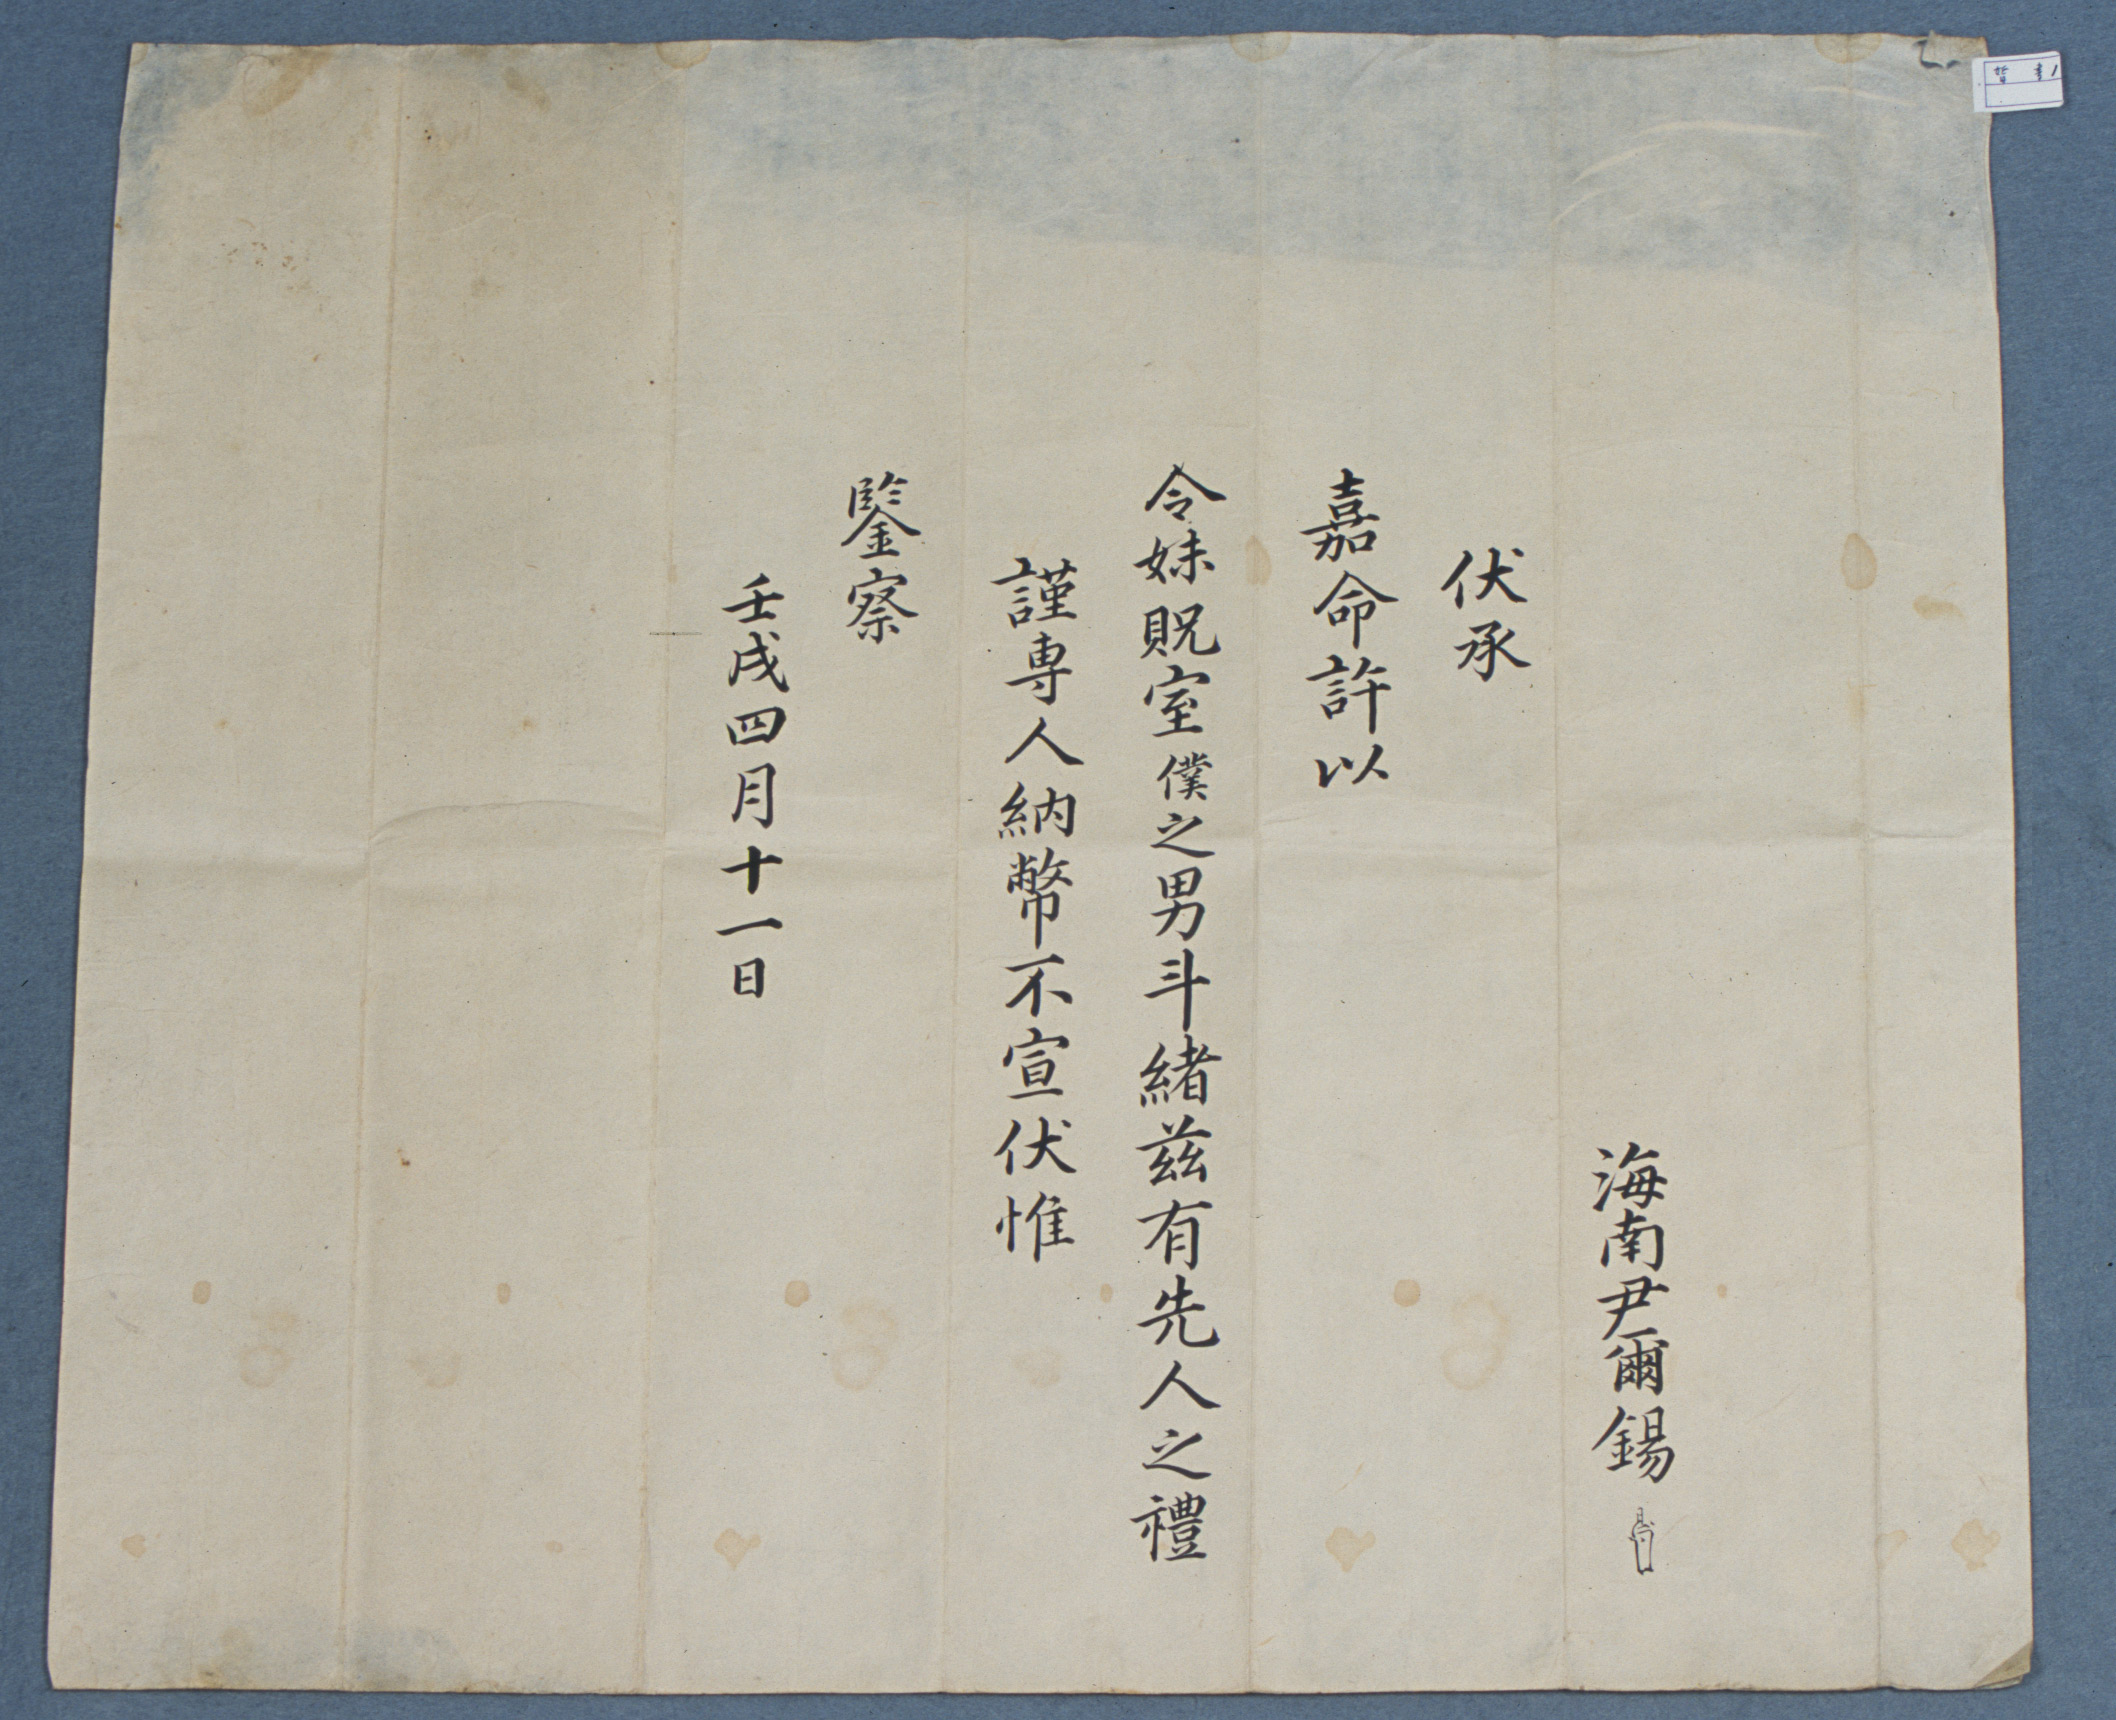 海南尹爾錫
伏承
嘉命許以
令妹貺室僕之男斗緖茲有先人之禮
謹專人納幣不宣伏惟
鍳察
壬戌四月十一日